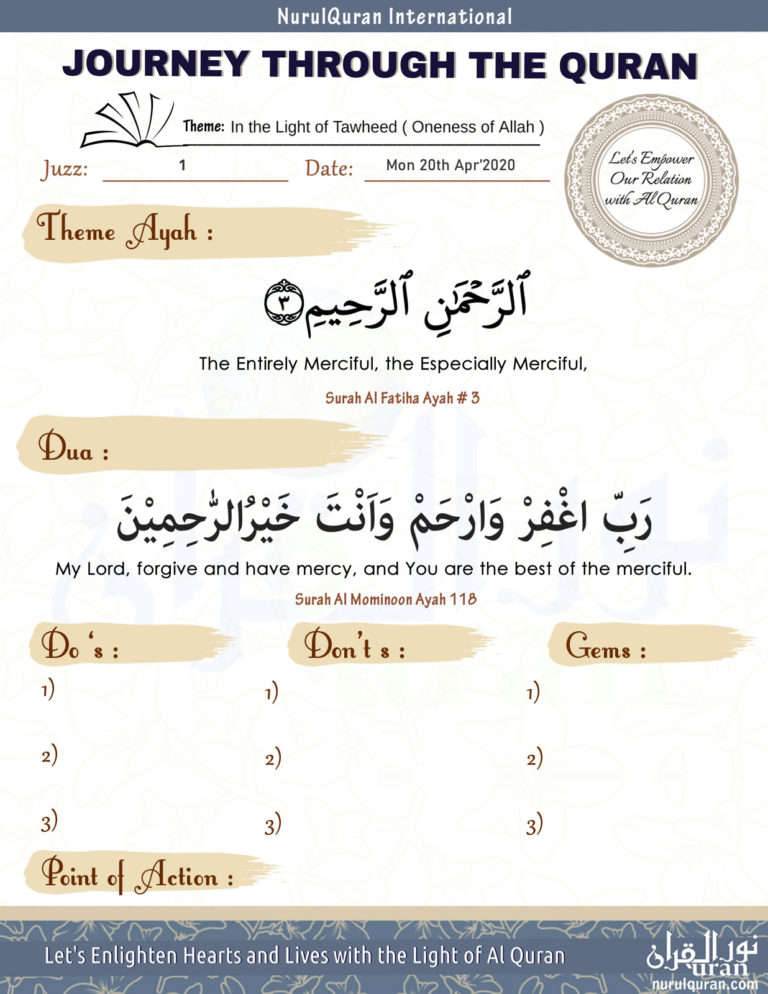 NurulQuran International
JOURNEY THROUGH THE QURAN
Theme: In the Light of Tawheed ( Oneness of Allah )
Juzz: 1 Date: Mon 20th Apr'2020
Let's Empower
Our Relation
with Al Quran
Theme Ayah :
ٱلرَّحْمَٰنِ ٱلرَّحِيمِ ٣
The Entirely Merciful, the Especially Merciful,
Surah Al Fatiha Ayah # 3
Dua :
رَبِّ اغْفِرْ وَارْحَمْ وَاَنْتَ خَيْرُالرّٰحِمِيْنَ
My Lord, forgive and have mercy, and You are the best of the merciful.
Surah Al Mominoon Ayah 118
Do 's : Don't s : Gems :
1) 1) 1)
2) 2) 2)
3) 3) 3)
Point of Action :
Let's Enlighten Hearts and Lives with the Light of Al Quran
نور القرآن
uran
nurulquran.com